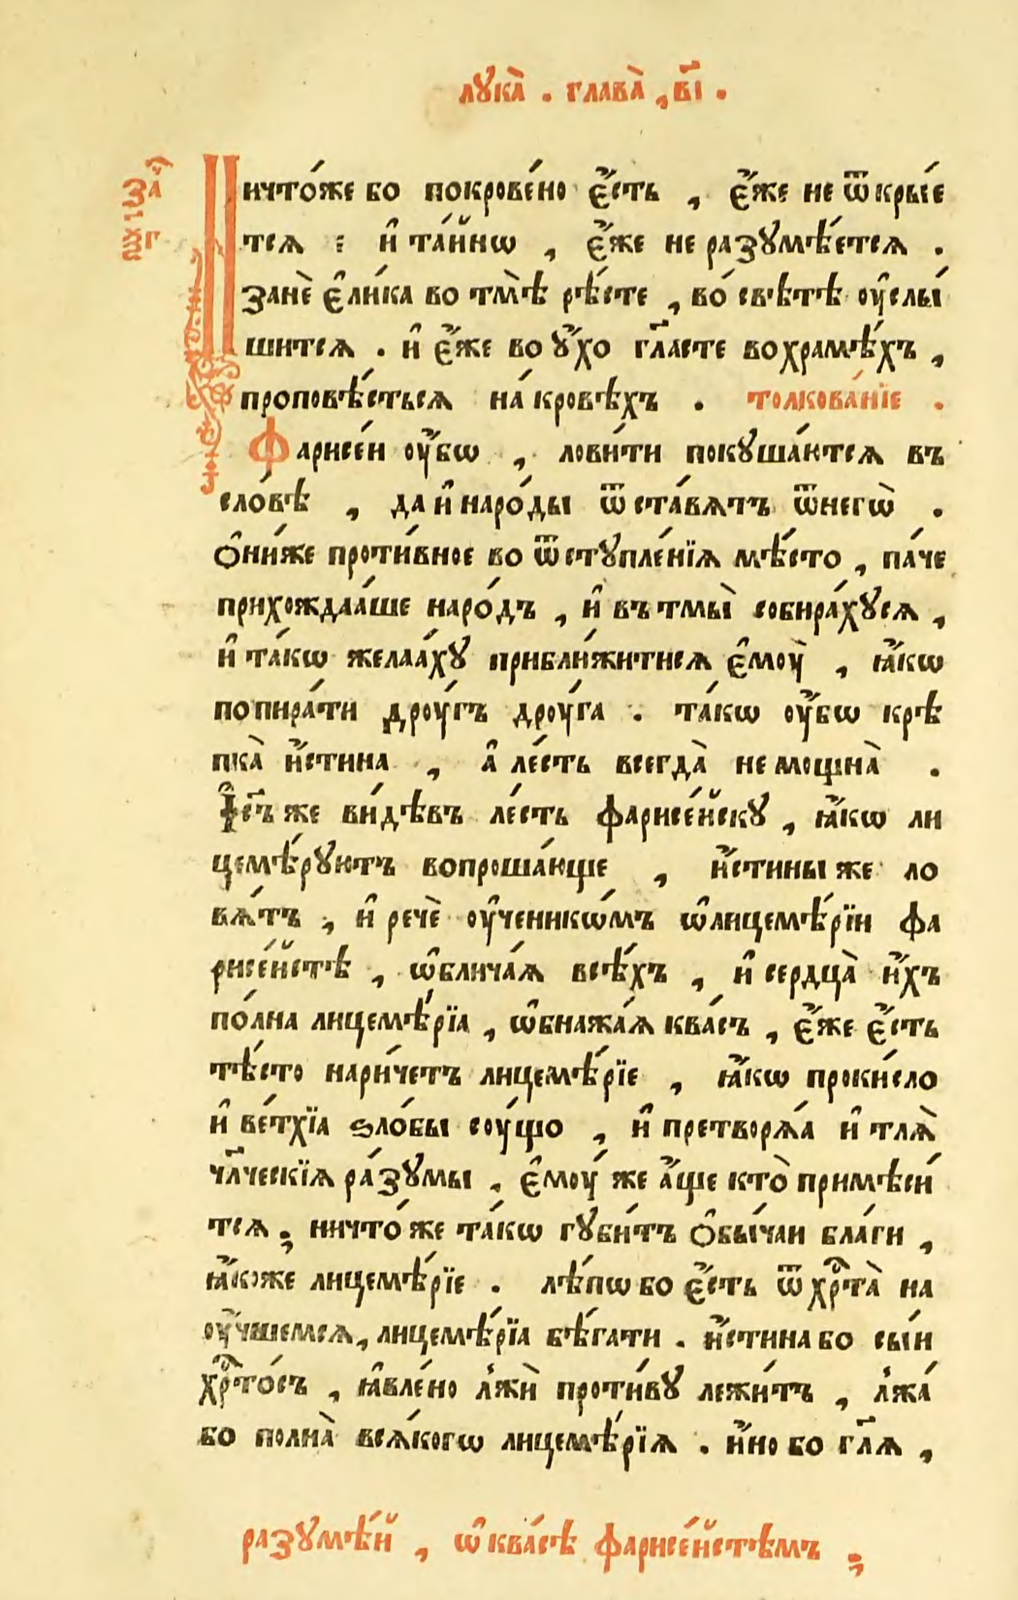 лꙋка̀ . глава̀ , в҃і .
за҃
ѯ҃г
Ничто́же бо покрове́но є҆́сть , є҆́же не ѿкры́е
тсѧ : и҆ та́йнѡ , є҆́же не разꙋмѣ́етсѧ .
занѐ є҆ли́ка во тмѣ̀ рѣ́сте , во́ свѣ́тѣ оу҆слы́
шитсѧ . и҆ є҆́же во ꙋ҆́хо гл҃асте во хра́мѣхъ ,
проповѣ́стьсѧ на́ кровѣхъ . толкова́нїе .
Фарисе́и оу҆́бѡ , лови́ти покꙋша́ютсѧ въ
сло́вѣ , да и҆ наро́ды ѿста́вѧтъ ѿнегѡ̀ .
ѻ҆ни́же проти́вное во ѿстꙋпле́нїѧ мѣ́сто , па́че
прихождаа́ше наро́дъ , и҆ въ тмы̀ собира́хꙋсѧ ,
и҆ та́кѡ желаа́хꙋ прибли́житисѧ є҆моу̀ , ꙗ҆́кѡ
попира́ти дроу́гъ дроу́га . та́кѡ оу҆́бѡ крѣ
пка̀ и҆́стина , а҆ ле́сть всегда̀ не мощна̀ .
І҆с҃ъ же ви́дѣвъ ле́сть фарисе́йскꙋ , ꙗ҆́кѡ ли
цемѣ́рꙋютъ вопроша́юще , и҆́стины же ло
вѧ́тъ , и҆ речѐ оу҆ченикѡ́мъ ѡ҆лицемѣ́рїи фа
рисе́йстѣ , ѡ҆блича́ѧ всѣ́хъ , и҆ сердца̀ и҆́хъ
по́лна лицемѣ́рїа , ѡ҆бнажа́ѧ ква́съ , є҆́же є҆́сть
тѣ́сто нари́четъ лицемѣ́рїе , ꙗ҆́кѡ проки́сло
и҆ ве́тхїа ѕло́бы соу́що , и҆ претворѧ́а и҆ тлѧ̀
чл҃ческїѧ ра́зꙋмы , є҆моу́ же а҆́ще кто̀ примѣси́
тсѧ ; ничто́же та́кѡ гꙋби́тъ ѻ҆бы́чаи бла́ги ,
ꙗ҆́коже лицемѣ́рїе . лѣ́пѡ бо є҆́сть ѿ хрⷭ҇та̀ на
оу҆́чшемсѧ , лицемѣ́рїа бѣ́гати . и҆́стина бо сы́и
хрⷭ҇то́съ , ꙗ҆вле́но лжѝ проти́вꙋ лежи́тъ , лжа́
бо полна̀ всѧ́когѡ лицемѣ́рїѧ . и҆́но бо гл҃ѧ ,
разꙋмѣ́й , ѡ҆ква́сѣ фарисе́йстѣмъ ;